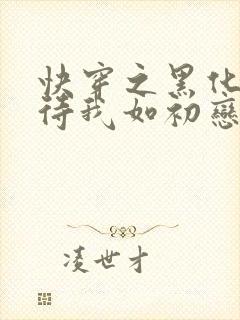 快穿之黑化
待我如初戀
凌世才